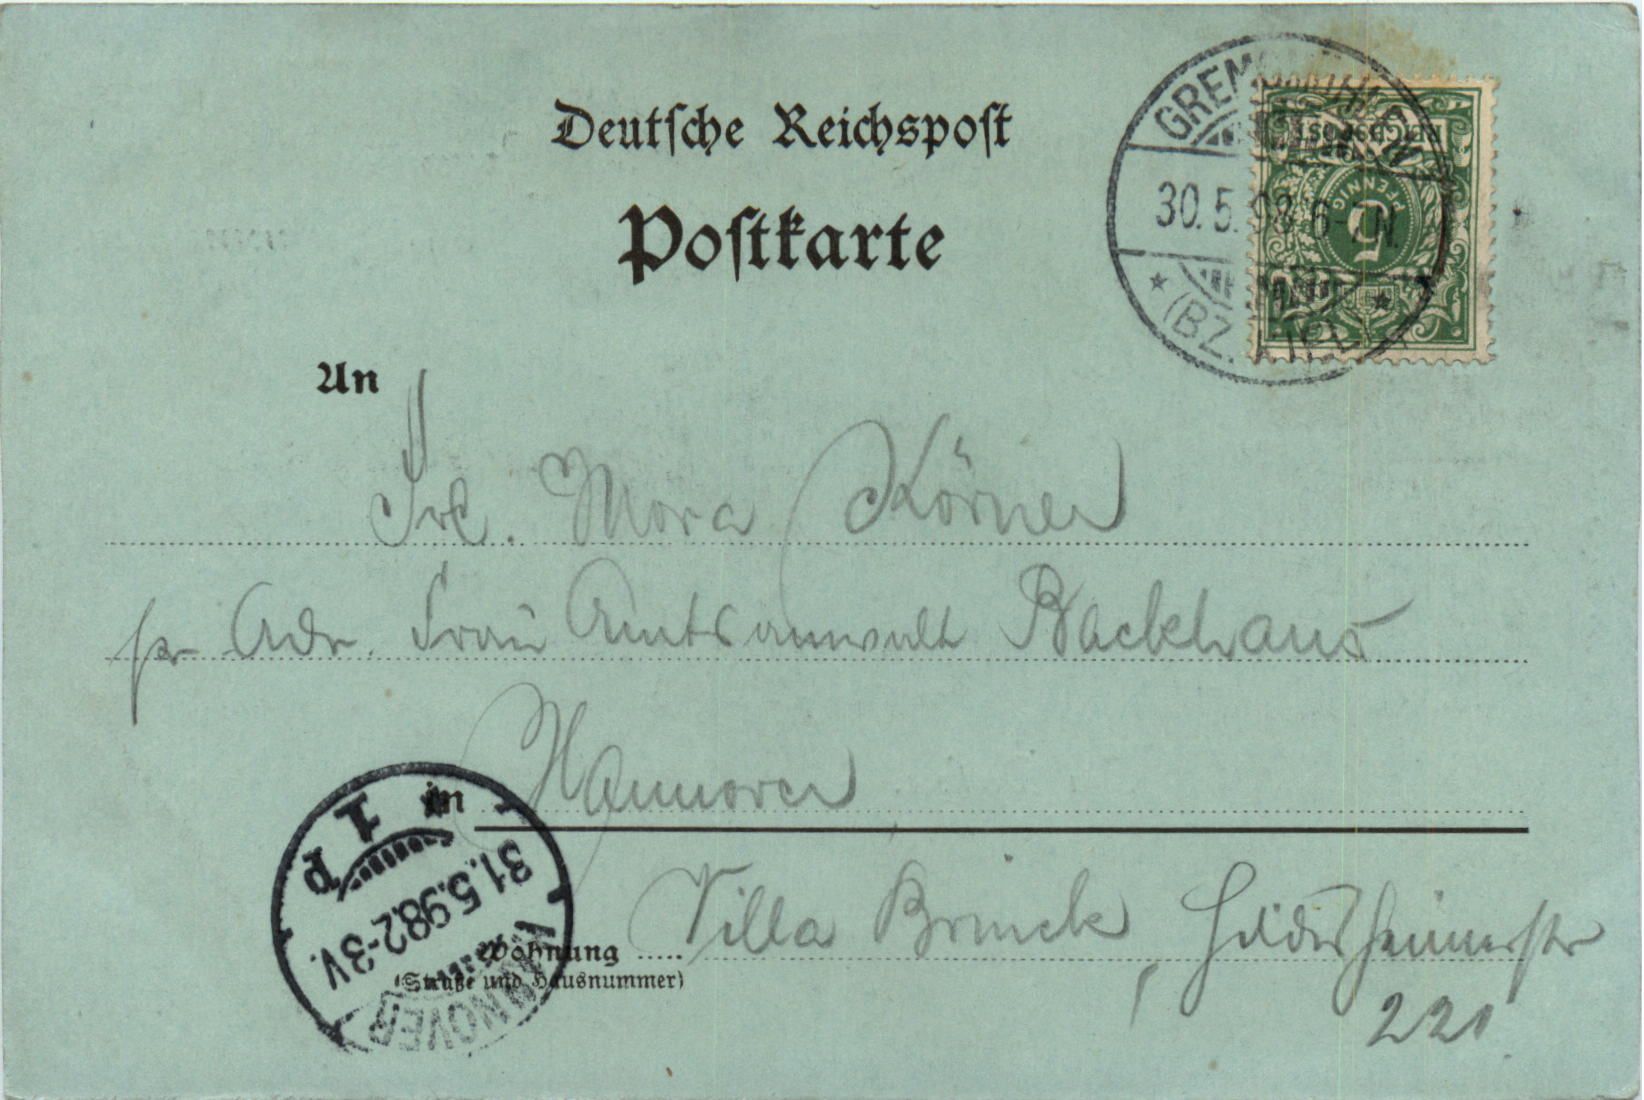 Deutsche Reichspost
Postkarte
30.5.98. 6-7N.
* (BZ. KIEL) *
REICHSPOST
5
PENNIG
An
Frl. Mora Körner
pr Adr. Frau Amtsanwalt Backhaus
in Hannover
Villa Brinck, Hildesheimerstr
221
Wohnung
(Straße und Hausnummer)
HANNOVER
31.5.98.2-3V.
* 1 p